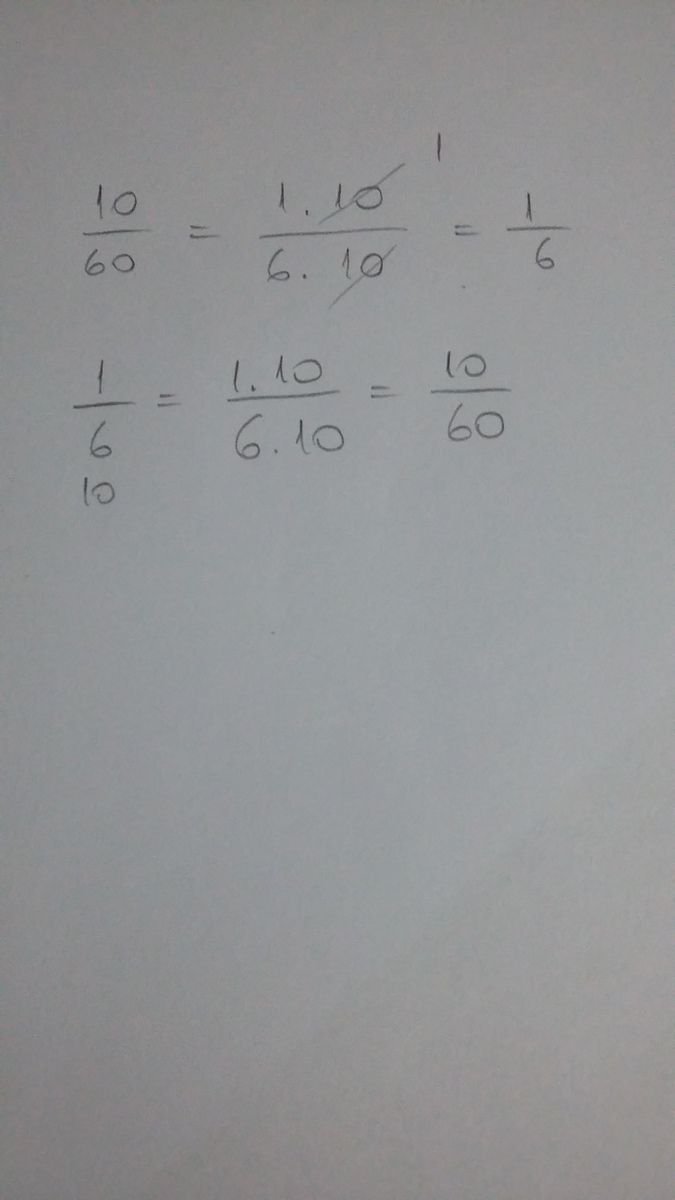 10/60 = 1.10/6.10 1 = 1/6
1/6 = 1.10/6.10 = 10/60
10